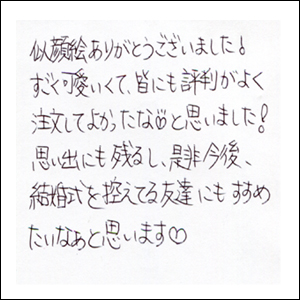 似顔絵ありがとうございました!
すごく可愛いくて、皆にも評判がよく
注文してよかったな♡と思いました!
思い出にも残るし、是非今後、
結婚式を控えてる友達にもすすめ
たいなぁと思います♡